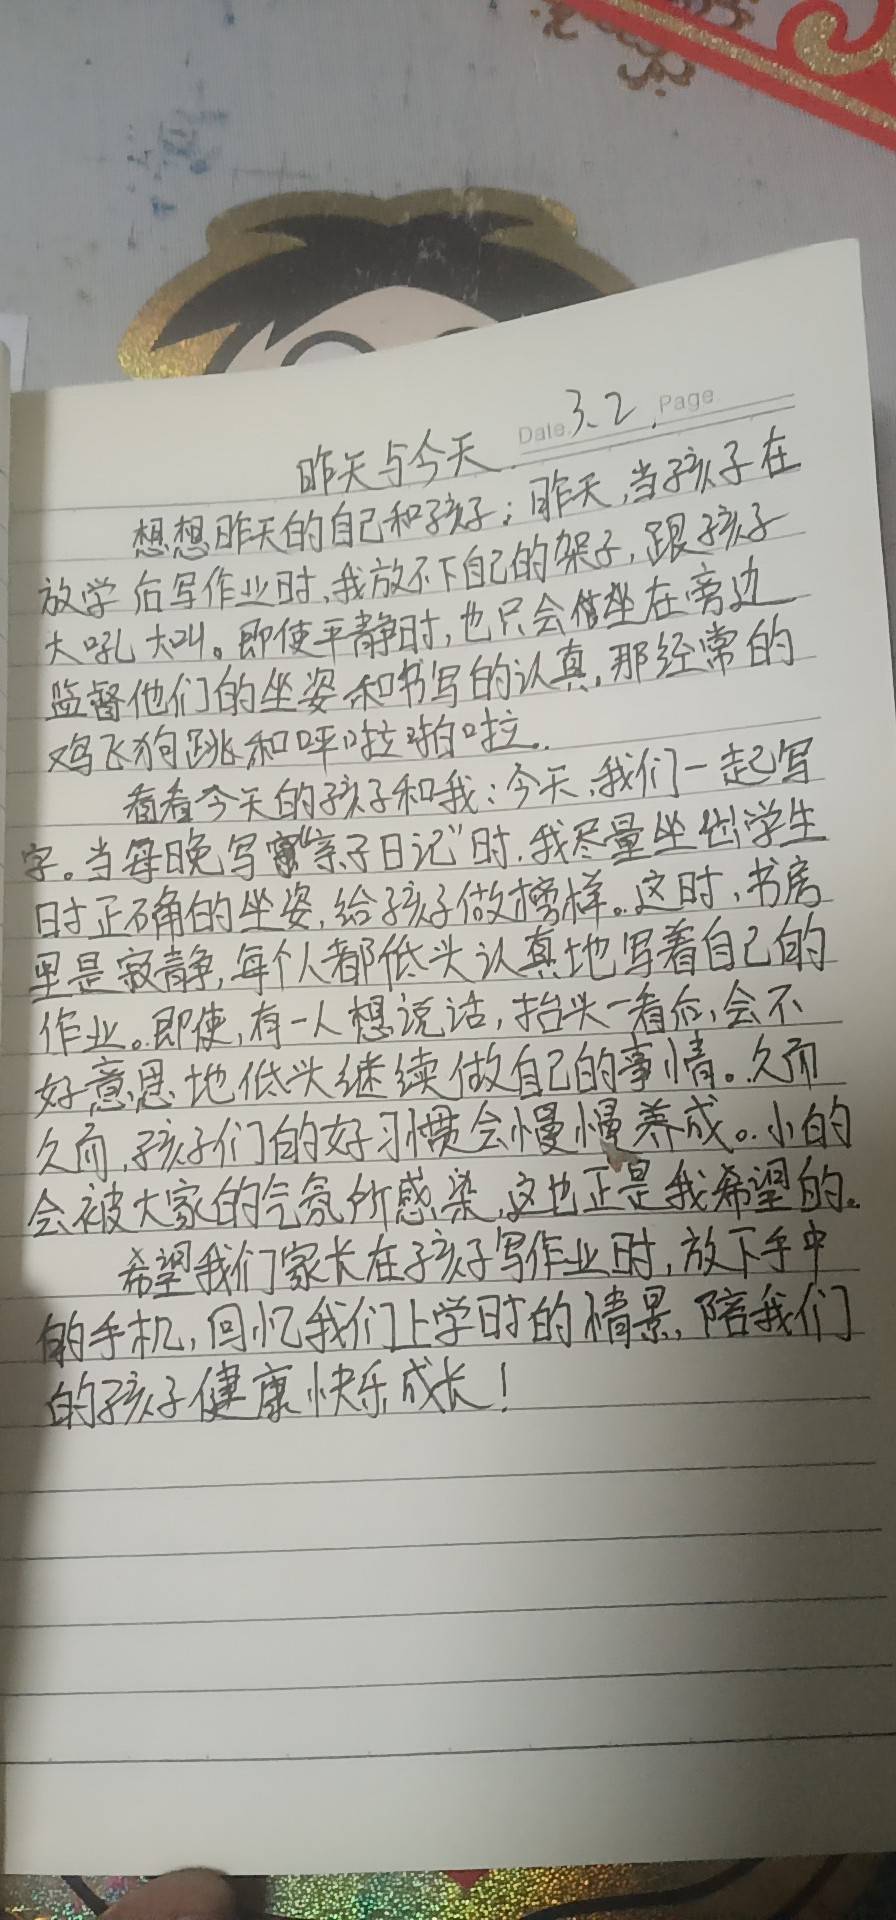 Date. 3.2. Page
昨天与今天
想想昨天的自己和孩子：昨天，当孩子在
放学后写作业时，我放不下自己的架子，跟孩子
大吼大叫。即使平静时，也只会坐在旁边
监督他们的坐姿和书写的认真，那经常的
鸡飞狗跳和呯啦啪啦。
看看今天的孩子和我：今天，我们一起写
字。当每晚写“亲子日记”时，我尽量坐出学生
时正确的坐姿，给孩子做榜样。这时，书房
里是寂静，每个人都低头认真地写着自己的
作业。即使，有一人想说话，抬头一看后，会不
好意思地低头继续做自己的事情。久而
久而，孩子们的好习惯会慢慢养成。小的
会被大家的气氛所感染，这也正是我希望的。
希望我们家长在孩子写作业时，放下手中
的手机，回忆我们上学时的情景，陪我们
的孩子健康快乐成长！